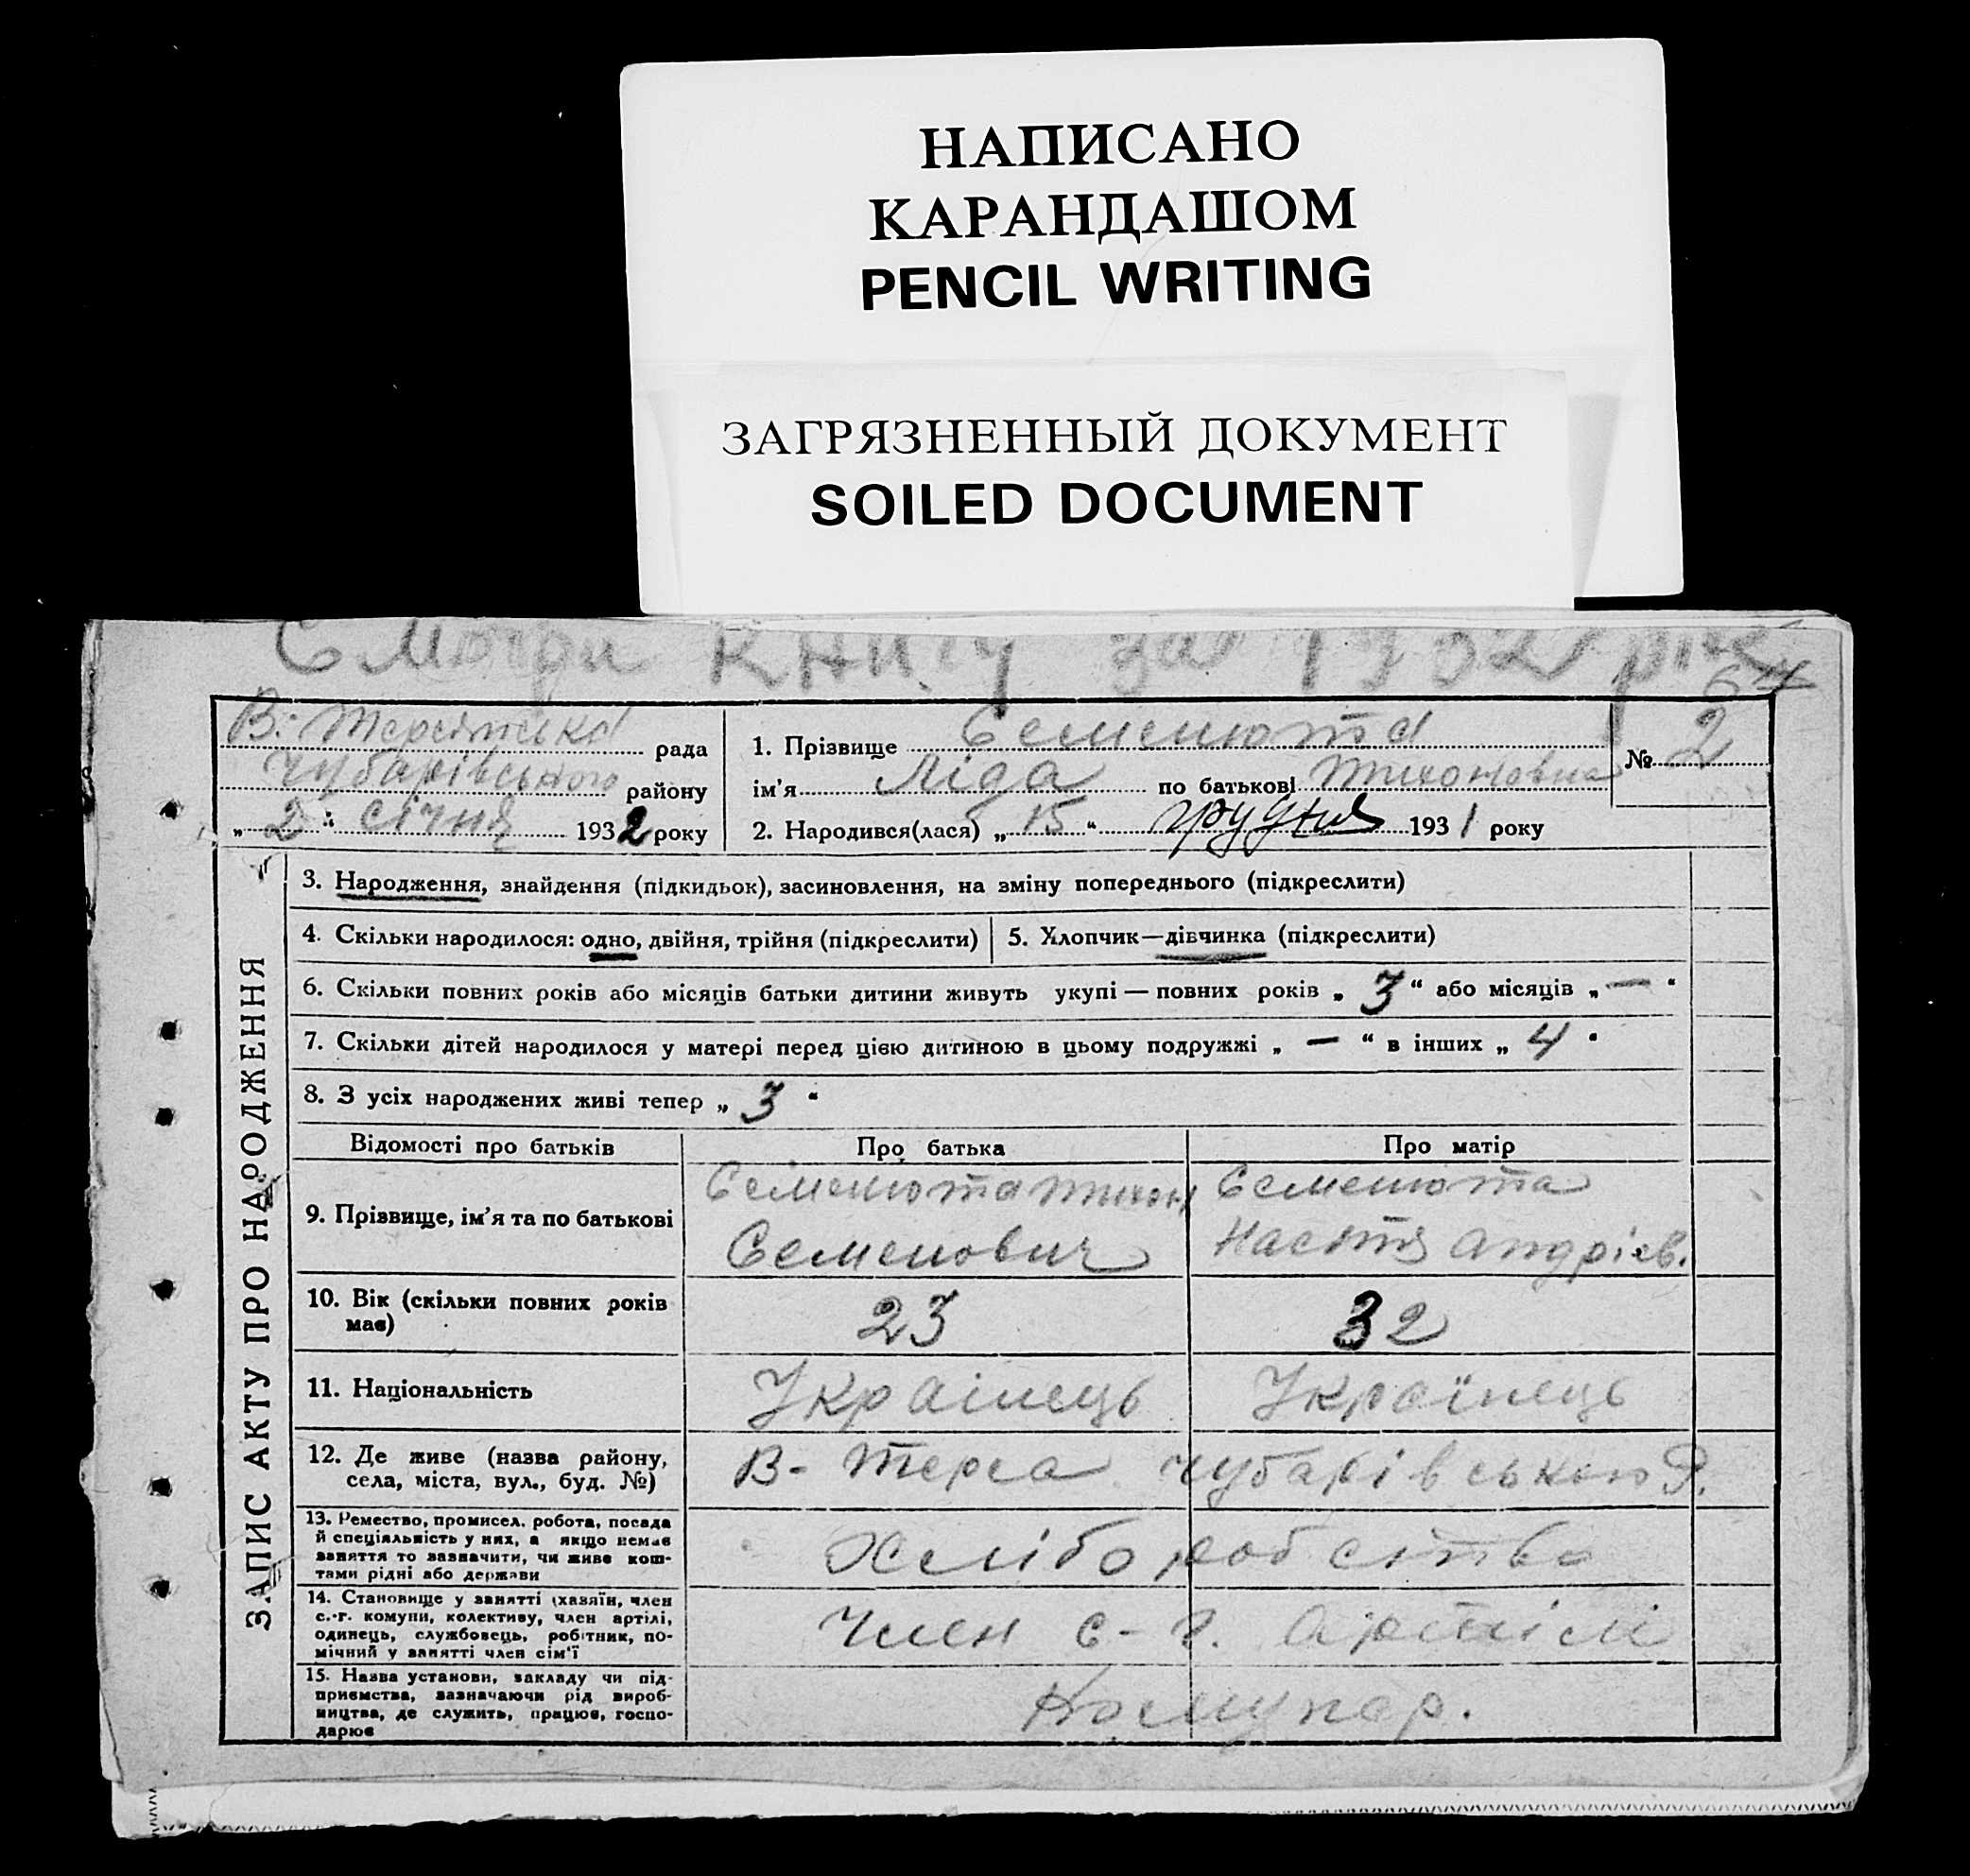 НАПИСАНО
КАРАНДАШОМ
PENCIL WRITING
ЗАГРЯЗНЕННЫЙ ДОКУМЕНТ
SOILED DOCUMENT
Смотри книгу за 1932 рік
В. Терсянська рада
Чубарівського району
„2“ січня 1932 року
1. Прізвище Семенюта
ім'я Ліда по батькові Тихоновна
№ 2
2. Народився(лася) „15“ грудня 1931 року
ЗАПИС АКТУ ПРО НАРОДЖЕННЯ
3. Народження, знайдення (підкидьок), засиновлення, на зміну попереднього (підкреслити)
4. Скільки народилося: одно, двійня, трійня (підкреслити)
5. Хлопчик—дівчинка (підкреслити)
6. Скільки повних років або місяців батьки дитини живуть укупі — повних років „3“ або місяців „—“
7. Скільки дітей народилося у матері перед цією дитиною в цьому подружжі „—“ в інших „4“
8. З усіх народжених живі тепер „3“
Відомості про батьків Про батька Про матір
9. Прізвище, ім'я та по батькові
Семенюта Тихон
Семенович
Семенюта
Настя Андріев.
10. Вік (скільки повних років
має)
23 32
11. Національність Украінець Украïнець
12. Де живе (назва району,
села, міста, вул., буд. №)
В- Терса Чубарівського Р.
13. Ремество, промисел. робота, посада
й спеціяльність у них, а якщо немає
заняття то зазначити, чи живе кош-
тами рідні або держави
Хліборобство
14. Становище у занятті (хазяїн, член
с.-г. комуни, колективу, член артілі,
одинець, службовець, робітник, по-
мічний у занятті член сім'ї
Член с-г. артілі
15. Назва установи, закладу чи під-
приємства, зазначаючи рід вироб-
ництва, де служить, працює, госпо-
дарює
Комунар.